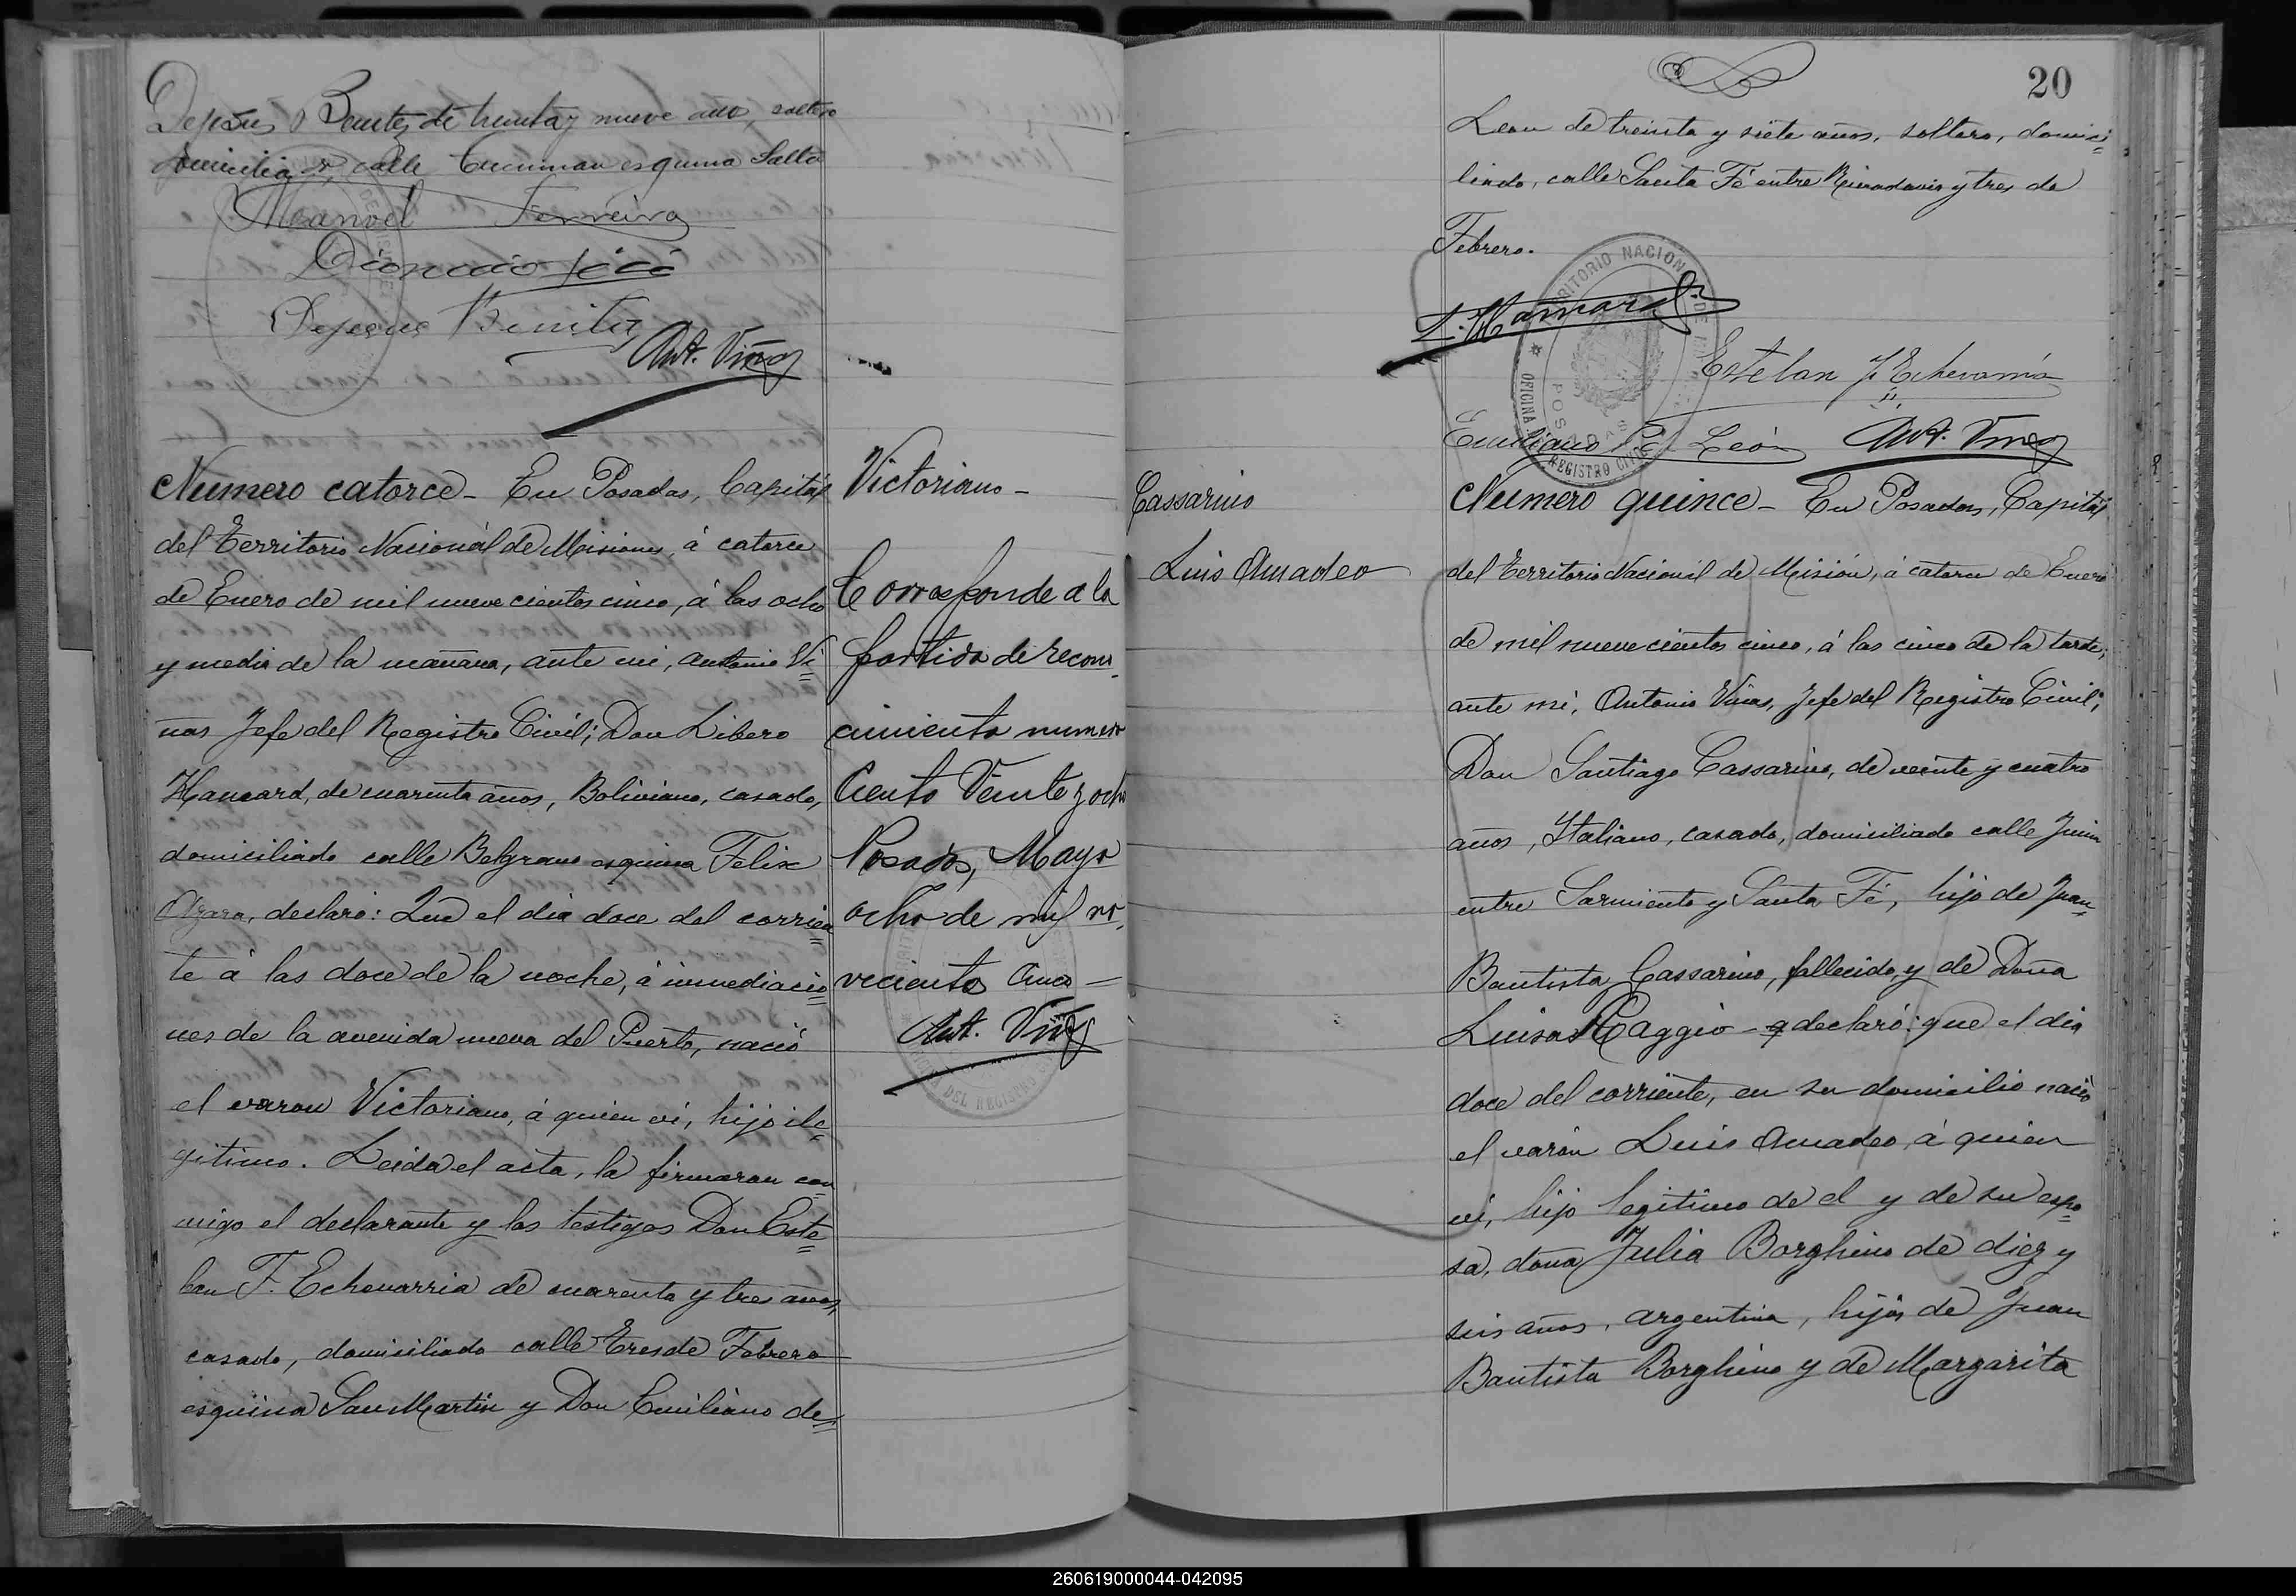 Dejesus Benites de treinta y nueve años, soltero
domiciliado, calle Tucuman esquina Salta
Manoel Ferreira
Dejesus Benites
Ant. Viñas
Numero catorce - En Posadas, Capital
del Territorio Nacional de Misiones, á catorce
de Enero de mil nueve cientos cinco, á las ocho
y media de la mañana, ante mi, Antonio Vi=
ñas Jefe del Registro Civil; Don Libero
de cuarenta años, Boliviano, casado,
domiciliado calle Belgrano esquina Felix
Azara, declaró: Que el dia doce del corrien=
te á las doce de la noche, á inmediacio=
nes de la avenida nueva del Puerto, nació
el varon Victoriano, á quien vi, hijo ile=
gitimo. Leida el acta, la firmaron con=
migo el declarante y los testigos Don Este=
ban F. Echevarria de cuarenta y tres años,
casado, domiciliado calle Tres de Febrero
esquina San Martin y Don Emiliano de=
Victoriano -
Corresponde a la
partida de recono=
cimiento numero
Ciento Veinte y ocho
Posadas, Mayo
ocho de mil no=
vecientos cinco =
Ant. Viñas
DEL REGISTRO
20
Leon de treinta y siete años, soltero, domici=
liado, calle Santa Fé entre Rivadavia y tres de
Febrero.
TERRITORIO NACIONAL DE
POSADAS
OFICINA
REGISTRO CIVIL
Esteban F. Echevarria
Emiliano de León Ant. Viñas
Cassarino
Luis Amadeo
Numero quince - En Posadas, Capital
del Territorio Nacional de Mision, á catorce de Enero
de mil nueve cientos cinco, á las cinco de la tarde,
ante mi, Antonio Viñas, Jefe del Registro Civil;
Don Santiago Cassarino, de veinte y cuatro
años, Italiano, casado, domiciliado calle Junin
entre Sarmiento y Santa Fé, hijo de Juan=
Bautista Cassarino, fallecido, y de Doña
Luisa Raggio - declaró: que el dia
doce del corriente, en su domicilio nació
el varón Luis Amadeo, á quien
vi, hijo legitimo de el y de su espo=
sa, doña Julia Borghino de diez y
seis años, argentina, hija de Juan
Bautista Borghino y de Margarita
260619000044-042095